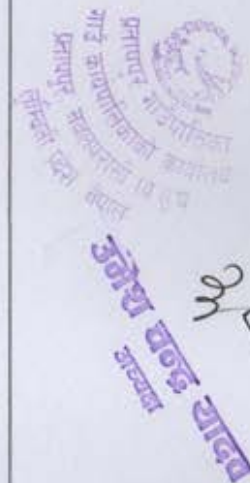 प्रतापपुर गाउँपालिका
गाउँ कार्यपालिकाको कार्यालय
प्रतापपुर, नवलपरासी (ब.सु.प)
लुम्बिनी प्रदेश, नेपाल
उमेश चन्द्र यादव
अध्यक्ष